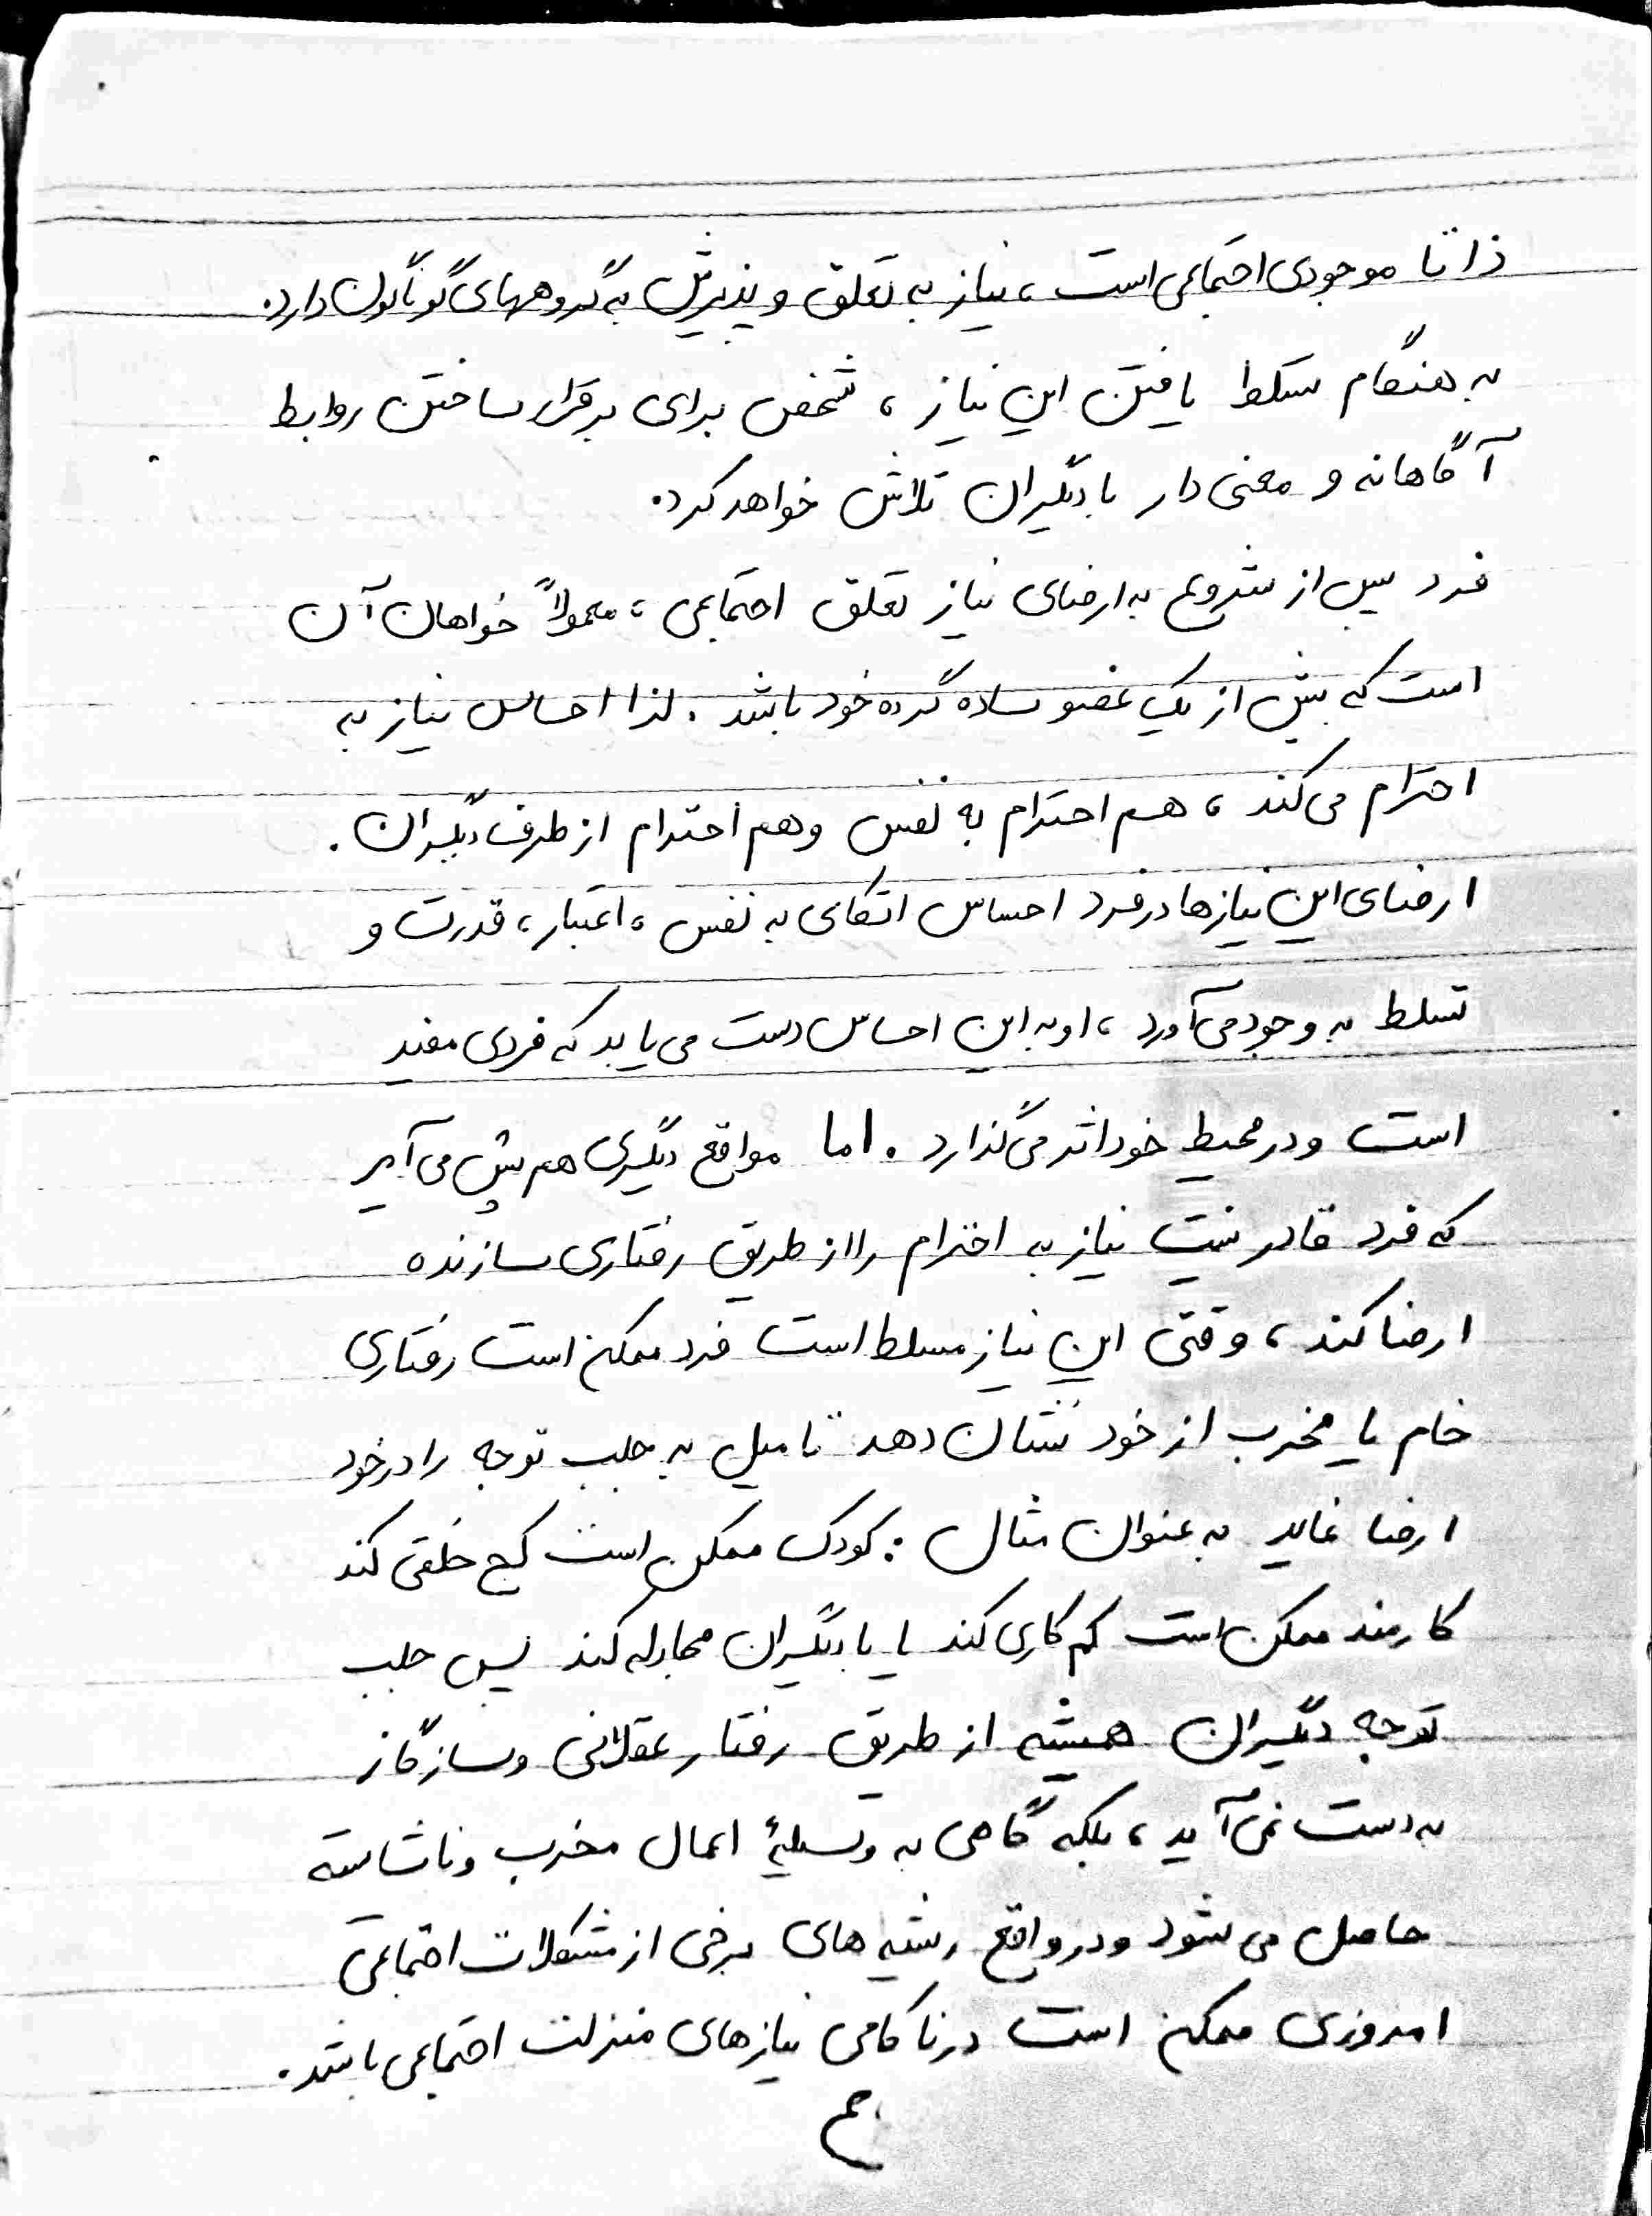 ذاتا موجودی اجتماعی است، نیاز به تعلق و پذیرش به گروههای گوناگون دارد.
به هنگام تسلط یافتن این نیاز، شخص برای برقرار ساختن روابط
آگاهانه و معنی دار با دیگران تلاش خواهد کرد.
فرد پس از شروع به ارضای نیاز تعلق اجتماعی، معمولاً خواهان آن
است که بیش از یک عضو ساده گروه خود باشد. لذا احساس نیاز به
احترام می کند، هم احترام به نفس و هم احترام از طرف دیگران.
ارضای این نیازها در فرد احساس اتکای به نفس، اعتبار، قدرت و
تسلط به وجود می آورد، او به این احساس دست می یابد که فردی مفید
است و در محیط خود اثر می گذارد. اما مواقع دیگری هم پیش می آید
که فرد قادر نیست نیاز به احترام را از طریق رفتاری سازنده
ارضا کند، وقتی این نیاز مسلط است فرد ممکن است رفتاری
خام یا مخرب از خود نشان دهد تا میل به جلب توجه را در خود
ارضا نماید به عنوان مثال: کودک ممکن است کج خلقی کند
کارمند ممکن است کم کاری کند یا با دیگران مجادله کند پس جلب
توجه دیگران همیشه از طریق رفتار عقلانی و سازگار
به دست نمی آید، بلکه گاهی به وسیلهٔ اعمال مخرب و ناشایسته
حاصل می شود و در واقع ریشه های برخی از مشکلات اجتماعی
امروزی ممکن است در ناکامی نیازهای منزلت اجتماعی باشد.